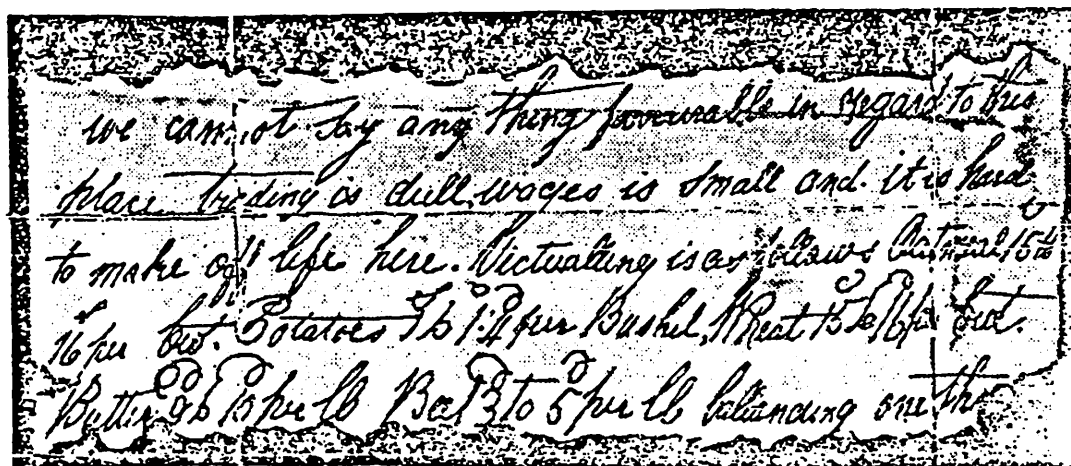 we cannot say any thing favourable in regard to this
place. trading is dull, wages is small and it is hard
to make off life here. Victualling is as follows Oatmeal 15 to
16 per cwt. Potatoes 1:4 per Bushel, Wheat 15 to 16 per cwt.
Butter 9 to 10 per lb Beef 3 to 5 per lb one the